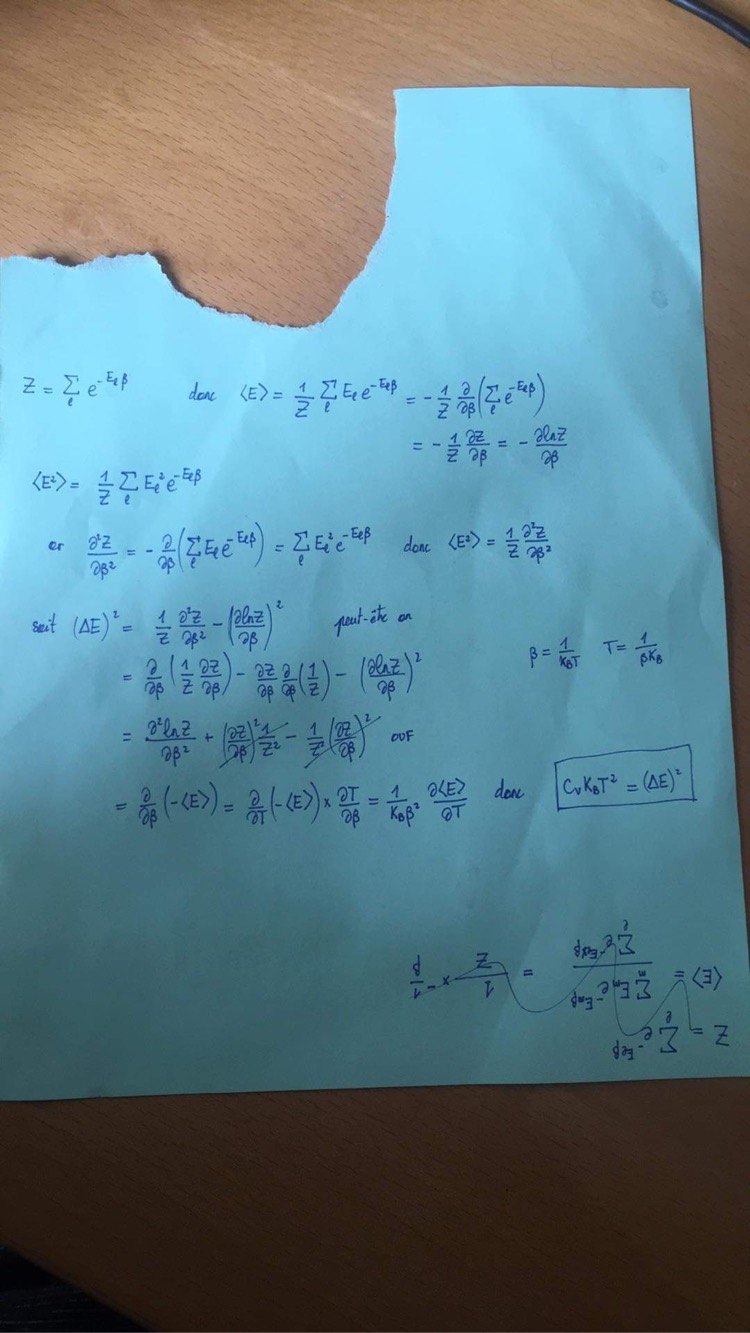 Z = ∑_ℓ e^{-E_ℓ β} donc ⟨E⟩ = \frac{1}{Z} ∑_ℓ E_ℓ e^{-E_ℓ β} = - \frac{1}{Z} \frac{∂}{∂β} (∑_ℓ e^{-E_ℓ β})
= - \frac{1}{Z} \frac{∂Z}{∂β} = - \frac{∂lnZ}{∂β}
⟨E²⟩ = \frac{1}{Z} ∑_ℓ E_ℓ² e^{-E_ℓ β}
or \frac{∂²Z}{∂β²} = - \frac{∂}{∂β} (∑_ℓ E_ℓ e^{-E_ℓ β}) = ∑_ℓ E_ℓ² e^{-E_ℓ β} donc ⟨E²⟩ = \frac{1}{Z} \frac{∂²Z}{∂β²}
soit (ΔE)² = \frac{1}{Z} \frac{∂²Z}{∂β²} - (\frac{∂lnZ}{∂β})² peut-être on
= \frac{∂}{∂β} (\frac{1}{Z} \frac{∂Z}{∂β}) - \frac{∂Z}{∂β} \frac{∂}{∂β} (\frac{1}{Z}) - (\frac{∂lnZ}{∂β})²
β = \frac{1}{K_B T} T = \frac{1}{β K_B}
= \frac{∂²lnZ}{∂β²} + (\frac{∂Z}{∂β})² \frac{1}{Z²} - \frac{1}{Z²} (\frac{∂Z}{∂β})² OUF
= \frac{∂}{∂β} (-⟨E⟩) = \frac{∂}{∂T} (-⟨E⟩) × \frac{∂T}{∂β} = \frac{1}{K_B β²} \frac{∂⟨E⟩}{∂T} donc C_v K_B T² = (ΔE)²
Z = ∑_ℓ e^{-E_ℓ β}
⟨E⟩ = \frac{∑_m E_m e^{-E_m β}}{∑_ℓ e^{-E_ℓ β}} = \frac{1}{Z} × - \frac{1}{β}